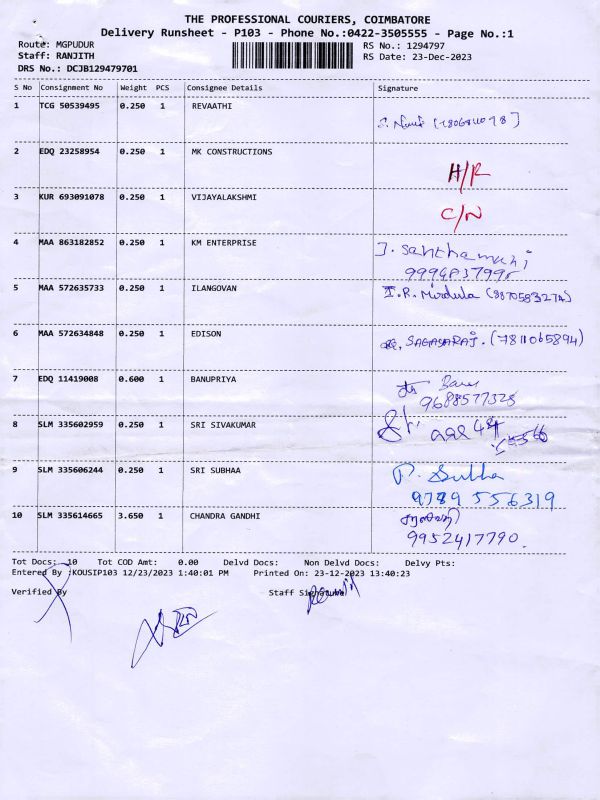 THE PROFESSIONAL COURIERS, COIMBATORE
Delivery Runsheet - P103 - Phone No.:0422-3505555 - Page No.:1
Route: MGPUDUR RS No.: 1294797
Staff: RANJITH RS Date: 23-Dec-2023
DRS No.: DCJB129479701
S No Consignment No Weight PCS Consignee Details Signature
1 TCG 50539495 0.250 1 REVAATHI
2 EDQ 23258954 0.250 1 MK CONSTRUCTIONS H/R
3 KUR 693091078 0.250 1 VIJAYALAKSHMI C/N
4 MAA 863182852 0.250 1 KM ENTERPRISE J. Santhamani
5 MAA 572635733 0.250 1 ILANGOVAN I.R. Mirdula (8870583274)
6 MAA 572634848 0.250 1 EDISON SAGAYARAJ. (7811065894)
7 EDQ 11419008 0.600 1 BANUPRIYA
9688577325
8 SLM 335602959 0.250 1 SRI SIVAKUMAR
9 SLM 335606244 0.250 1 SRI SUBHAA P. Subha
9789 556319
10 SLM 335614665 3.650 1 CHANDRA GANDHI சரஸ்வதி
9952417790.
Tot Docs: 10 Tot COD Amt: 0.00 Delvd Docs: Non Delvd Docs: Delvy Pts:
Entered By :KOUSIP103 12/23/2023 1:40:01 PM Printed On: 23-12-2023 13:40:23
Verified By Staff Signature